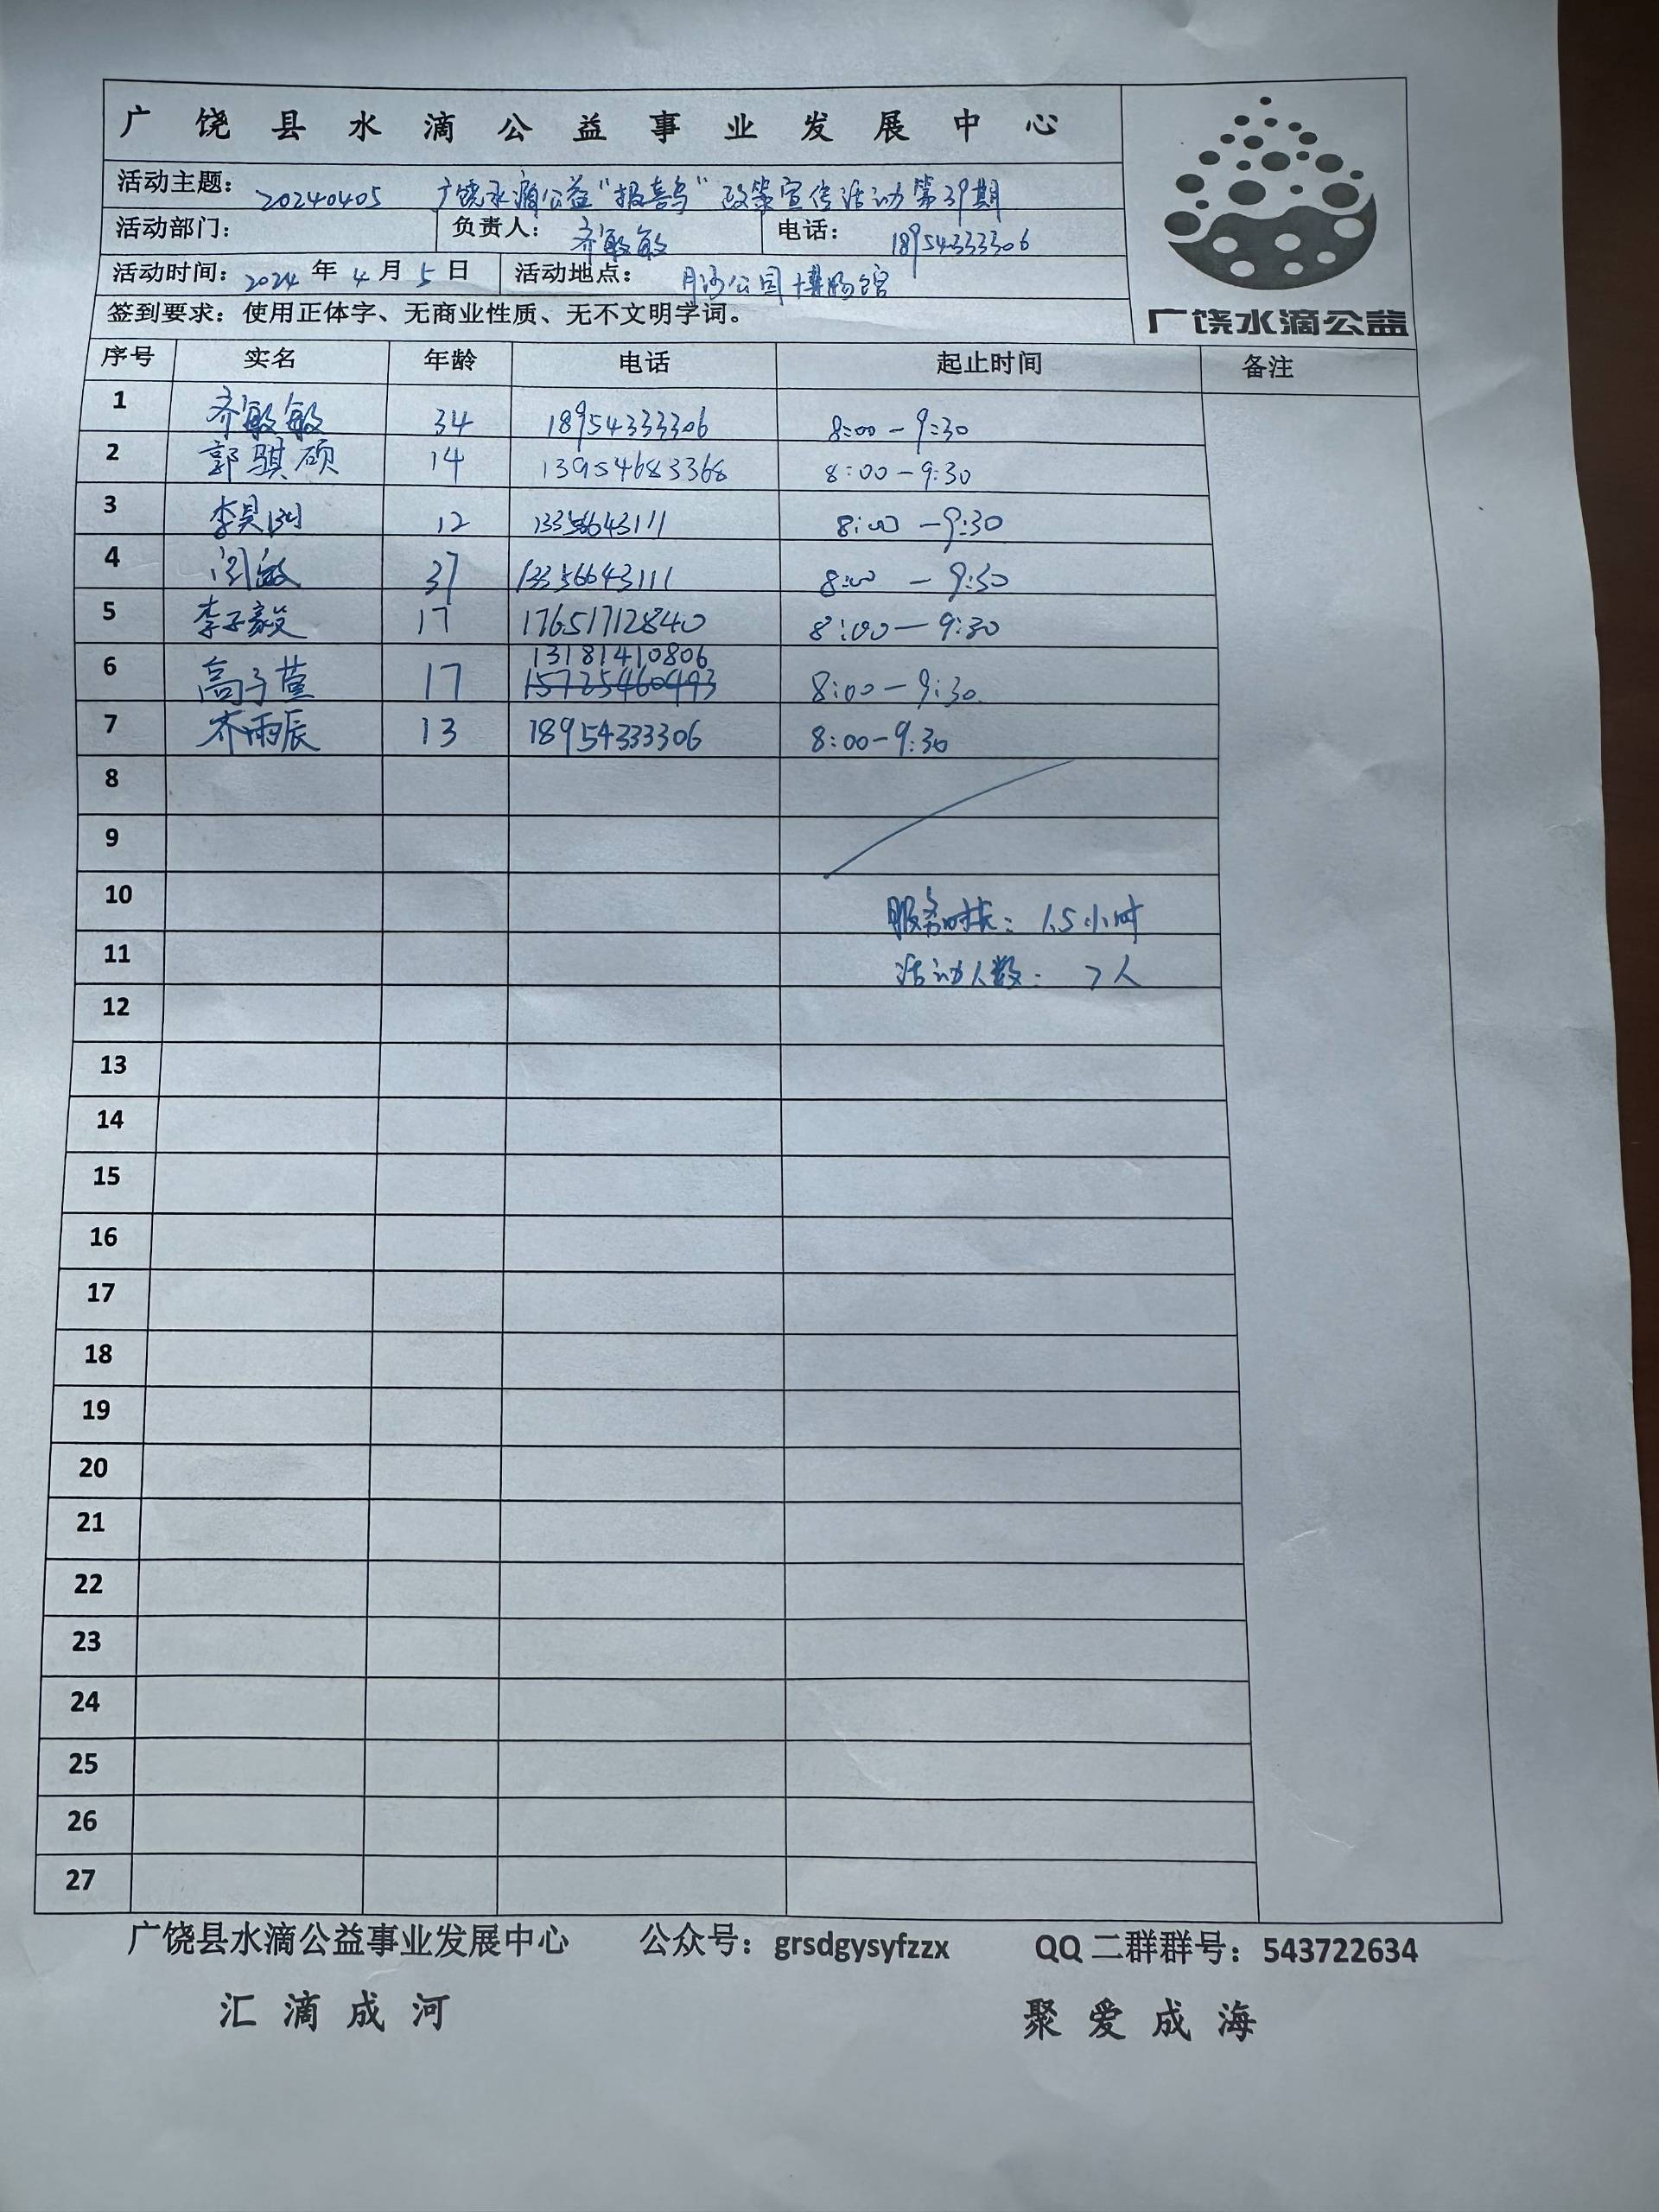 广饶县水滴公益事业发展中心
活动主题： 20240405 广饶水滴公益“报喜鸟”政策宣传活动第39期
活动部门： 负责人：齐敏敏 电话：18954333306
活动时间：2024年4月5日 活动地点：月河公园博物馆
签到要求：使用正体字、无商业性质、无不文明字词。
广饶水滴公益
序号 实名 年龄 电话 起止时间 备注
1 齐敏敏 34 18954333306 8:00-9:30
2 郭骐硕 14 13954683368 8:00-9:30
3 李昊 12 13356643111 8:00-9:30
4 闫敏 37 13356643111 8:00-9:30
5 李子毅 17 17651712840 8:00-9:30
13181410806
6 高子萱 17 15725460493 8:00-9:30
7 齐雨辰 13 18954333306 8:00-9:30
8
9
10 服务时长：1.5小时
11 活动人数：7人
12
13
14
15
16
17
18
19
20
21
22
23
24
25
26
27
广饶县水滴公益事业发展中心 公众号：grsdgysyfzzx QQ二群群号：543722634
汇滴成河 聚爱成海